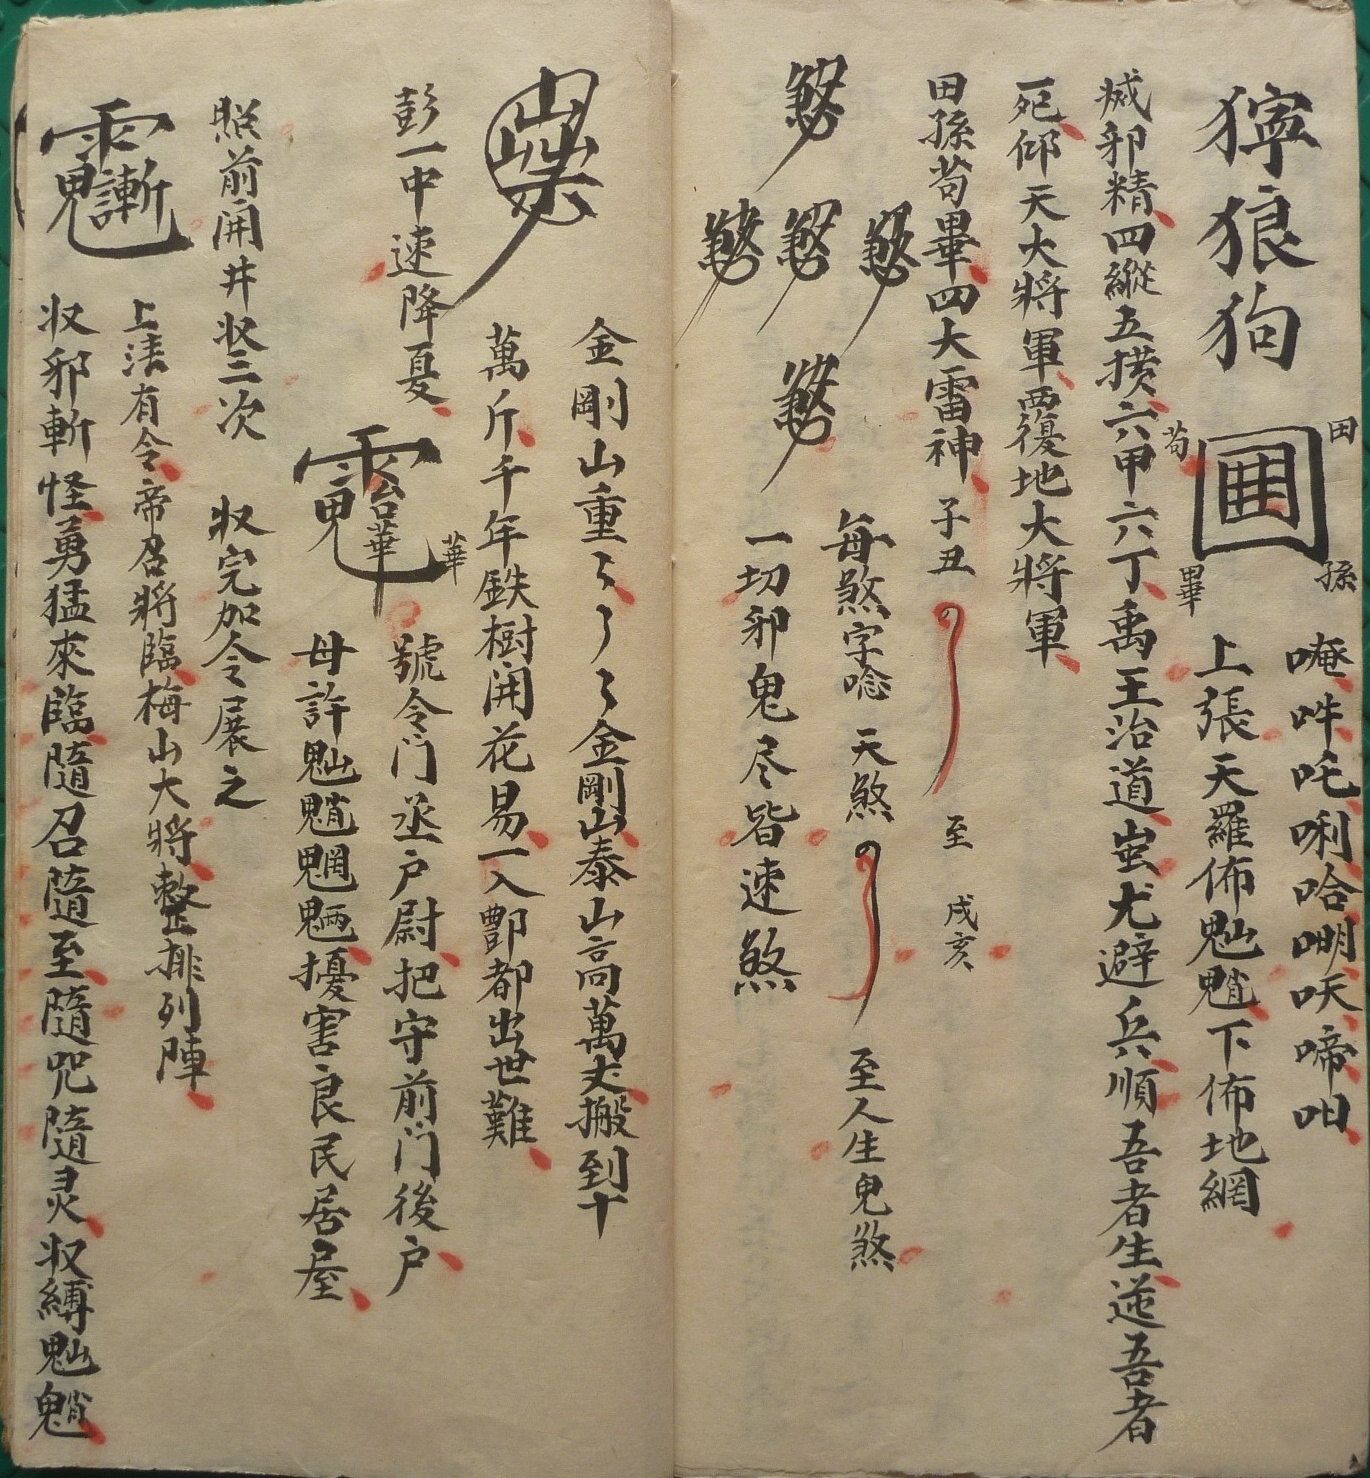 獰狼狗
田
苟
孫
畢
唵吽吒唎哈𠵇呋啼呬
上張天羅佈魈下佈地網
滅邪精四縱五横六甲六丁禹王治道蚩尤避兵順吾者生逆吾者
死仰天大將軍覆地大將軍
田孫苟畢四大雷神子丑
至戌亥
每煞字唸天煞
至人生鬼煞
一切邪鬼尽皆速煞
金剛山重〻〻〻金剛山泰山高萬丈搬到十
萬斤千年鉄樹開花易一入酆都出世難
彭一中速降戛
華
號令门丞户尉把守前门後户
毋許魈魍魎擾害良民居屋
照前開井収三次 収完加令展之
上清有令帝召將臨梅山大將整排列陣
収邪斬怪勇猛來臨隨召隨至隨咒隨灵収縛魈